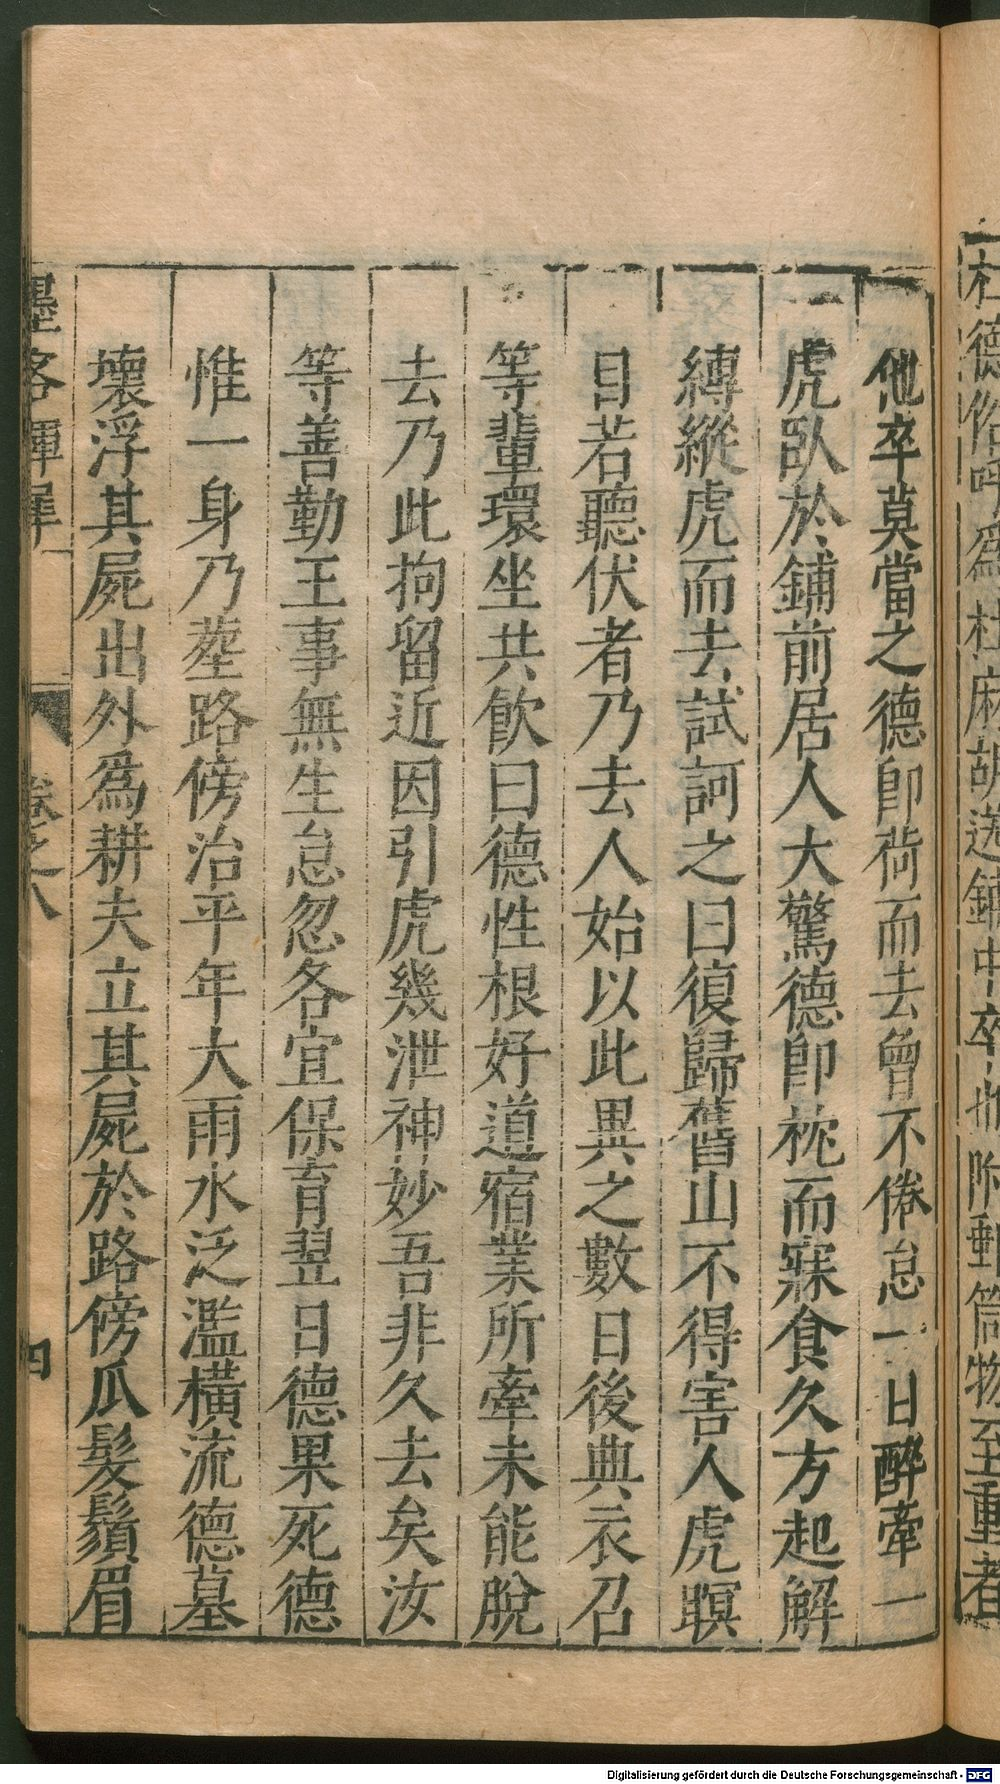 杜德俗呼爲杜麻胡送鎮中卒凡附郵筒物至重者
他卒莫當之德卽荷而去曾不倦怠一日醉牽一
虎臥於鋪前居人大驚德卽枕而寐食久方起解
縛縱虎而去試訶之曰復歸舊山不得害人虎瞑
目若聽伏者乃去人始以此異之數日後典衣召
等輩環坐共飮曰德性根好道宿業所牽未能脫
去乃此拘留近因引虎幾泄神妙吾非久去矣汝
等善勤王事無生怠忽各宜保育翌日德果死德
惟一身乃塟路傍治平年大雨水泛濫橫流德墓
壞浮其屍出外爲耕夫立其屍於路傍瓜髮鬚眉
墨客揮犀 卷之八 四
Digitalisierung gefördert durch die Deutsche Forschungsgemeinschaft - DFG